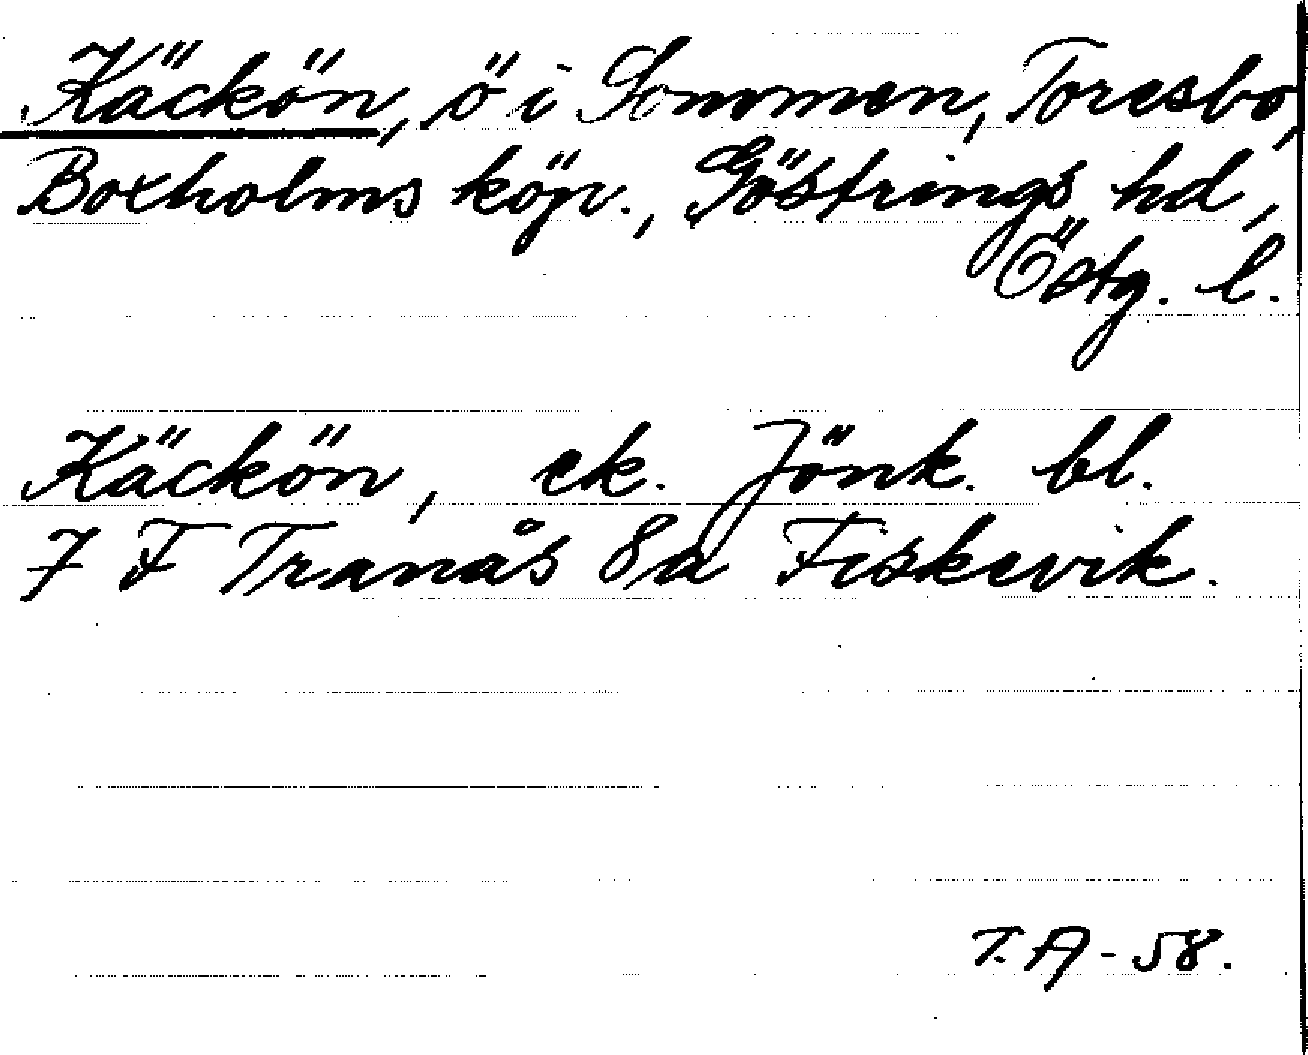 Käckön, ö i Sommen, Toresbo,
Boxholms köp., Göstrings hd,
Östg. l.
Käckön, ek. Jönk. bl.
7 F Tranås 8a Fiskevik.
T.A-58.